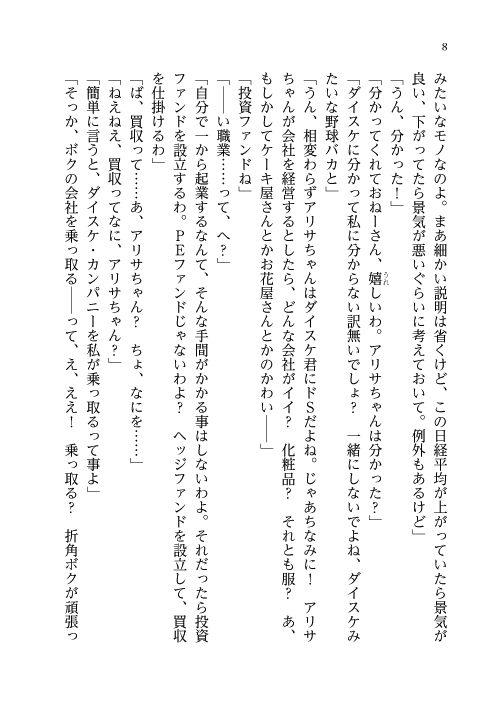 8
みたいなモノなのよ。まあ細かい説明は省くけど、この日経平均が上がっていたら景気が
良い、下がってたら景気が悪いぐらいに考えておいて。例外もあるけど」
「うん、分かった！」
「分かってくれておねーさん、嬉しいわ。アリサちゃんは分かった？」
うれ
「ダイスケに分かって私に分からない訳無いでしょ？　一緒にしないでよね、ダイスケみ
たいな野球バカと」
「うん、相変わらずアリサちゃんはダイスケ君にドＳだよね。じゃあちなみに！　アリサ
ちゃんが会社を経営するとしたら、どんな会社がイイ？　化粧品？　それとも服？　あ、
もしかしてケーキ屋さんとかお花屋さんとかのかわい――」
「投資ファンドね」
「――い職業……って、へ？」
「自分で一から起業するなんて、そんな手間がかかる事はしないわよ。それだったら投資
ファンドを設立するわ。ＰＥファンドじゃないわよ？　ヘッジファンドを設立して、買収
を仕掛けるわ」
「ば、買収って……あ、アリサちゃん？　ちょ、なにを……」
「ねえねえ、買収ってなに、アリサちゃん？」
「簡単に言うと、ダイスケ・カンパニーを私が乗っ取るって事よ」
「そっか、ボクの会社を乗っ取る――って、え、ええ！　乗っ取る？　折角ボクが頑張っ